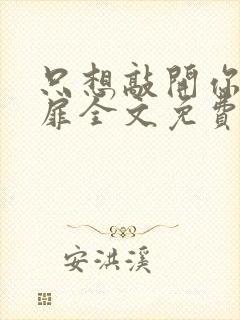 只想敲開你
扉全文免費
安洪溪